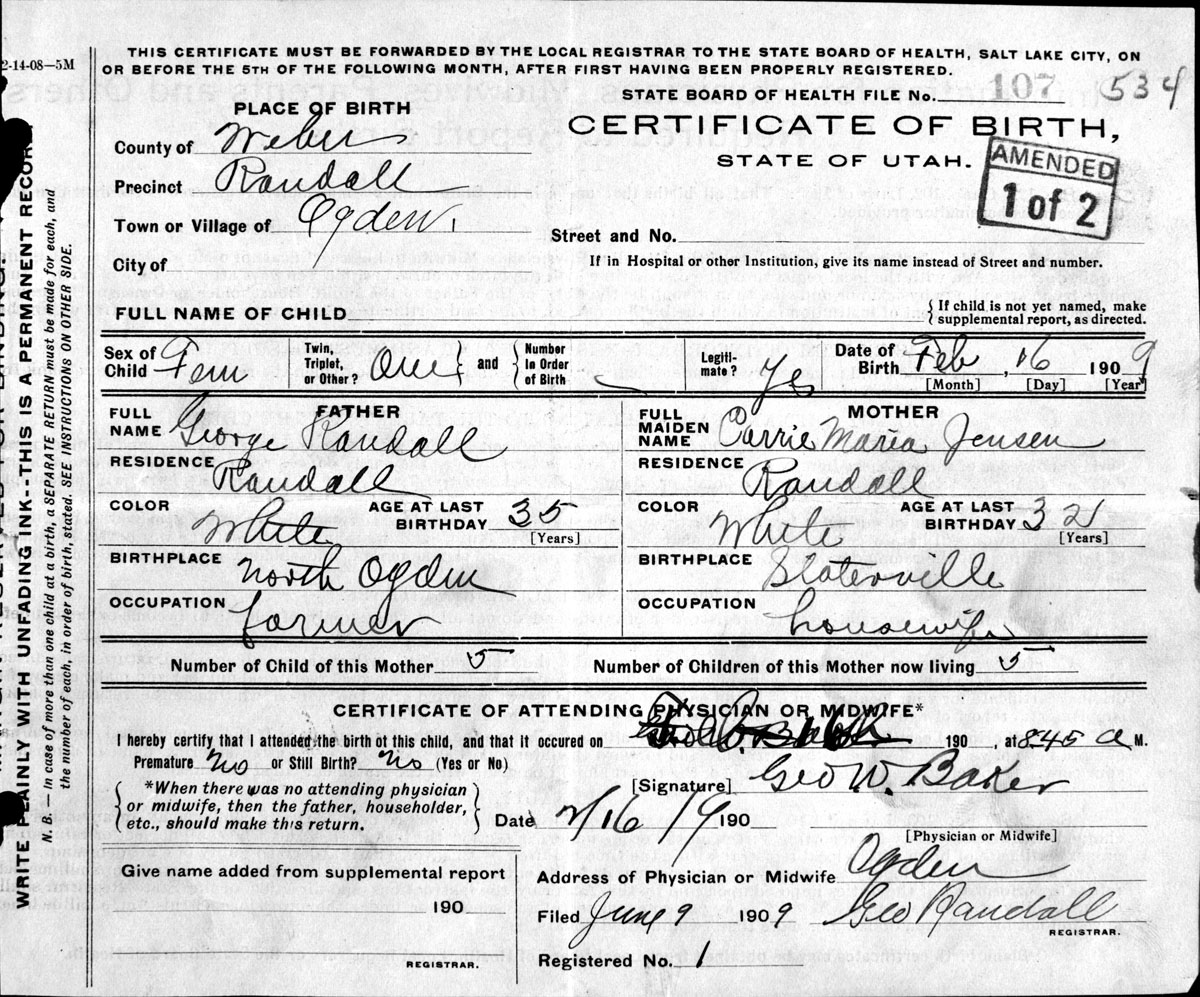 2-14-08—5M
THIS CERTIFICATE MUST BE FORWARDED BY THE LOCAL REGISTRAR TO THE STATE BOARD OF HEALTH, SALT LAKE CITY, ON
OR BEFORE THE 5TH OF THE FOLLOWING MONTH, AFTER FIRST HAVING BEEN PROPERLY REGISTERED.
STATE BOARD OF HEALTH FILE No. 107 534
PLACE OF BIRTH
CERTIFICATE OF BIRTH,
STATE OF UTAH.
AMENDED
1 of 2
County of Weber
Precinct Randall
Town or Village of Ogden
Street and No.
City of
If in Hospital or other Institution, give its name instead of Street and number.
FULL NAME OF CHILD
{ If child is not yet named, make
supplemental report, as directed.
Sex of Child Fem
Twin, Triplet, or Other? One } and { Number in Order of Birth
Legiti-mate? Yes
Date of Birth Feb, 16 1909
[Month] [Day] [Year]
FATHER
FULL NAME George Randall
RESIDENCE Randall
COLOR White AGE AT LAST BIRTHDAY 35
[Years]
BIRTHPLACE North Ogden
OCCUPATION farmer
MOTHER
FULL MAIDEN NAME Carrie Maria Jensen
RESIDENCE Randall
COLOR White AGE AT LAST BIRTHDAY 32
[Years]
BIRTHPLACE Slaterville
OCCUPATION housewife
Number of Child of this Mother 5 Number of Children of this Mother now living 5
CERTIFICATE OF ATTENDING PHYSICIAN OR MIDWIFE*
I hereby certify that I attended the birth ot this child, and that it occured on 190 , at 845 a M.
Premature No or Still Birth? No (Yes or No)
[Signature] Geo W. Baker
{ *When there was no attending physician
or midwife, then the father, householder,
etc., should make this return. }
Date 2/16/9 190
[Physician or Midwife]
Give name added from supplemental report
190
REGISTRAR.
Address of Physician or Midwife Ogden
Filed June 9 1909 Geo Randall
REGISTRAR.
Registered No. 1
WRITE PLAINLY WITH UNFADING INK--THIS IS A PERMANENT RECORD.
N. B. — In case of more than one child at a birth, a SEPARATE RETURN must be made for each, and
the number of each, in order of birth, stated. SEE INSTRUCTIONS ON OTHER SIDE.